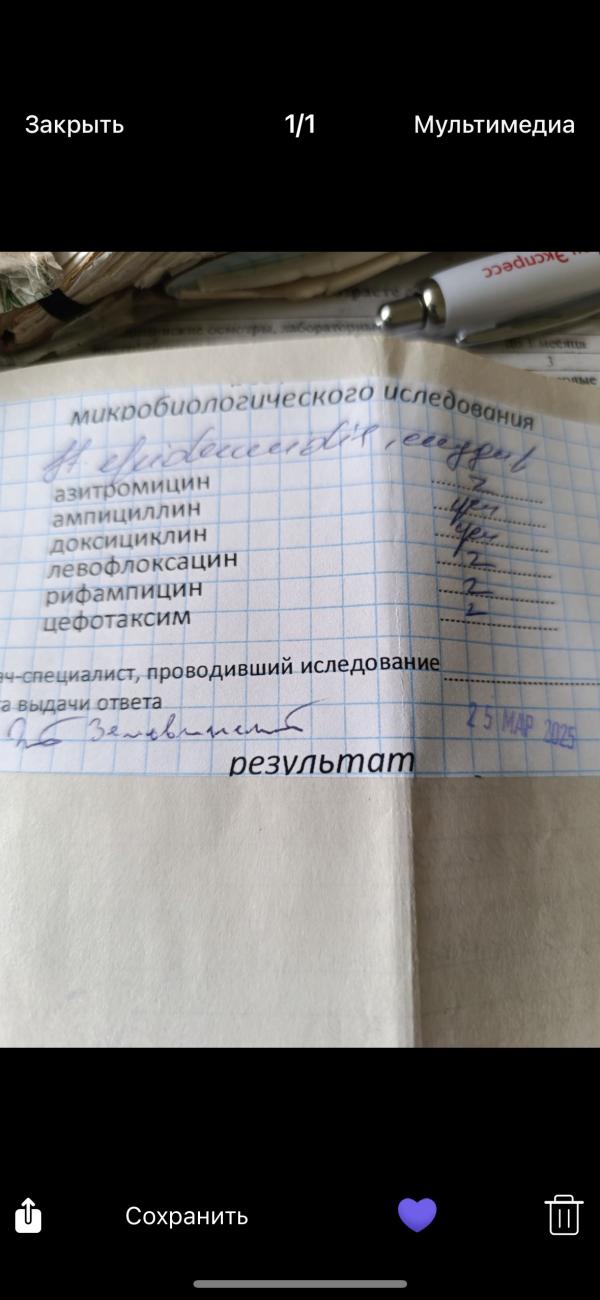 Закрыть 1/1 Мультимедиа
Экспресс
до 1 месяца
3
микробиологического иследования
St. epidermidis,
азитромицин 2
ампициллин уст
доксициклин уст
левофлоксацин 2
рифампицин 2
цефотаксим 2
ач-специалист, проводивший иследование
а выдачи ответа
25 МАР 2025
результат
Сохранить